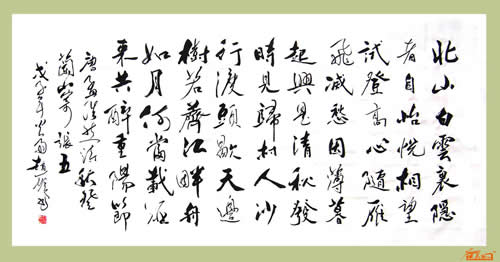 北山白雲裏隱
者自怡悅相望
試登高心隨雁
飛滅愁因薄暮
起興是清秋發
時見歸村人沙
行渡頭歇天邊
樹若薺江畔舟
如月何當載酒
來共醉重陽節
唐孟浩然詩秋登
蘭山寄張五